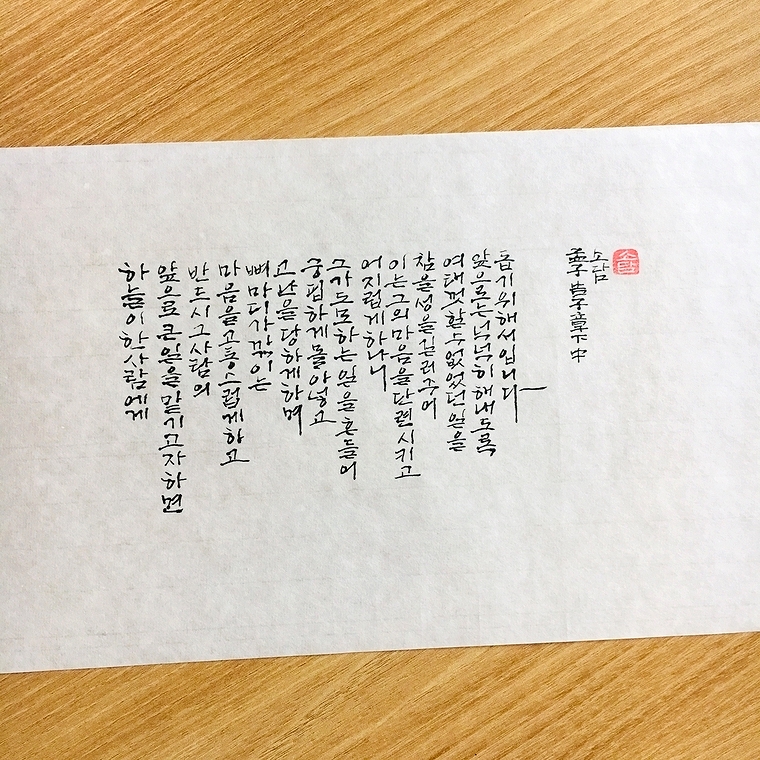 하늘이 한 사람에게
앞으로 큰 일을 맡기고자 하면
반드시 그 사람의
마음을 고통스럽게 하고
뼈마디가 꺾이는
고난을 당하게 하며
궁핍하게 몰아넣고
그가 도모하는 일을 흔들어
어지럽게 하나니
이는 그의 마음을 단련시키고
참을성을 길러주어
여태껏 할 수 없었던 일을
앞으로는 넉넉히 해내도록
돕기 위해서입니다
孟子 告子章下 中
소담
소담